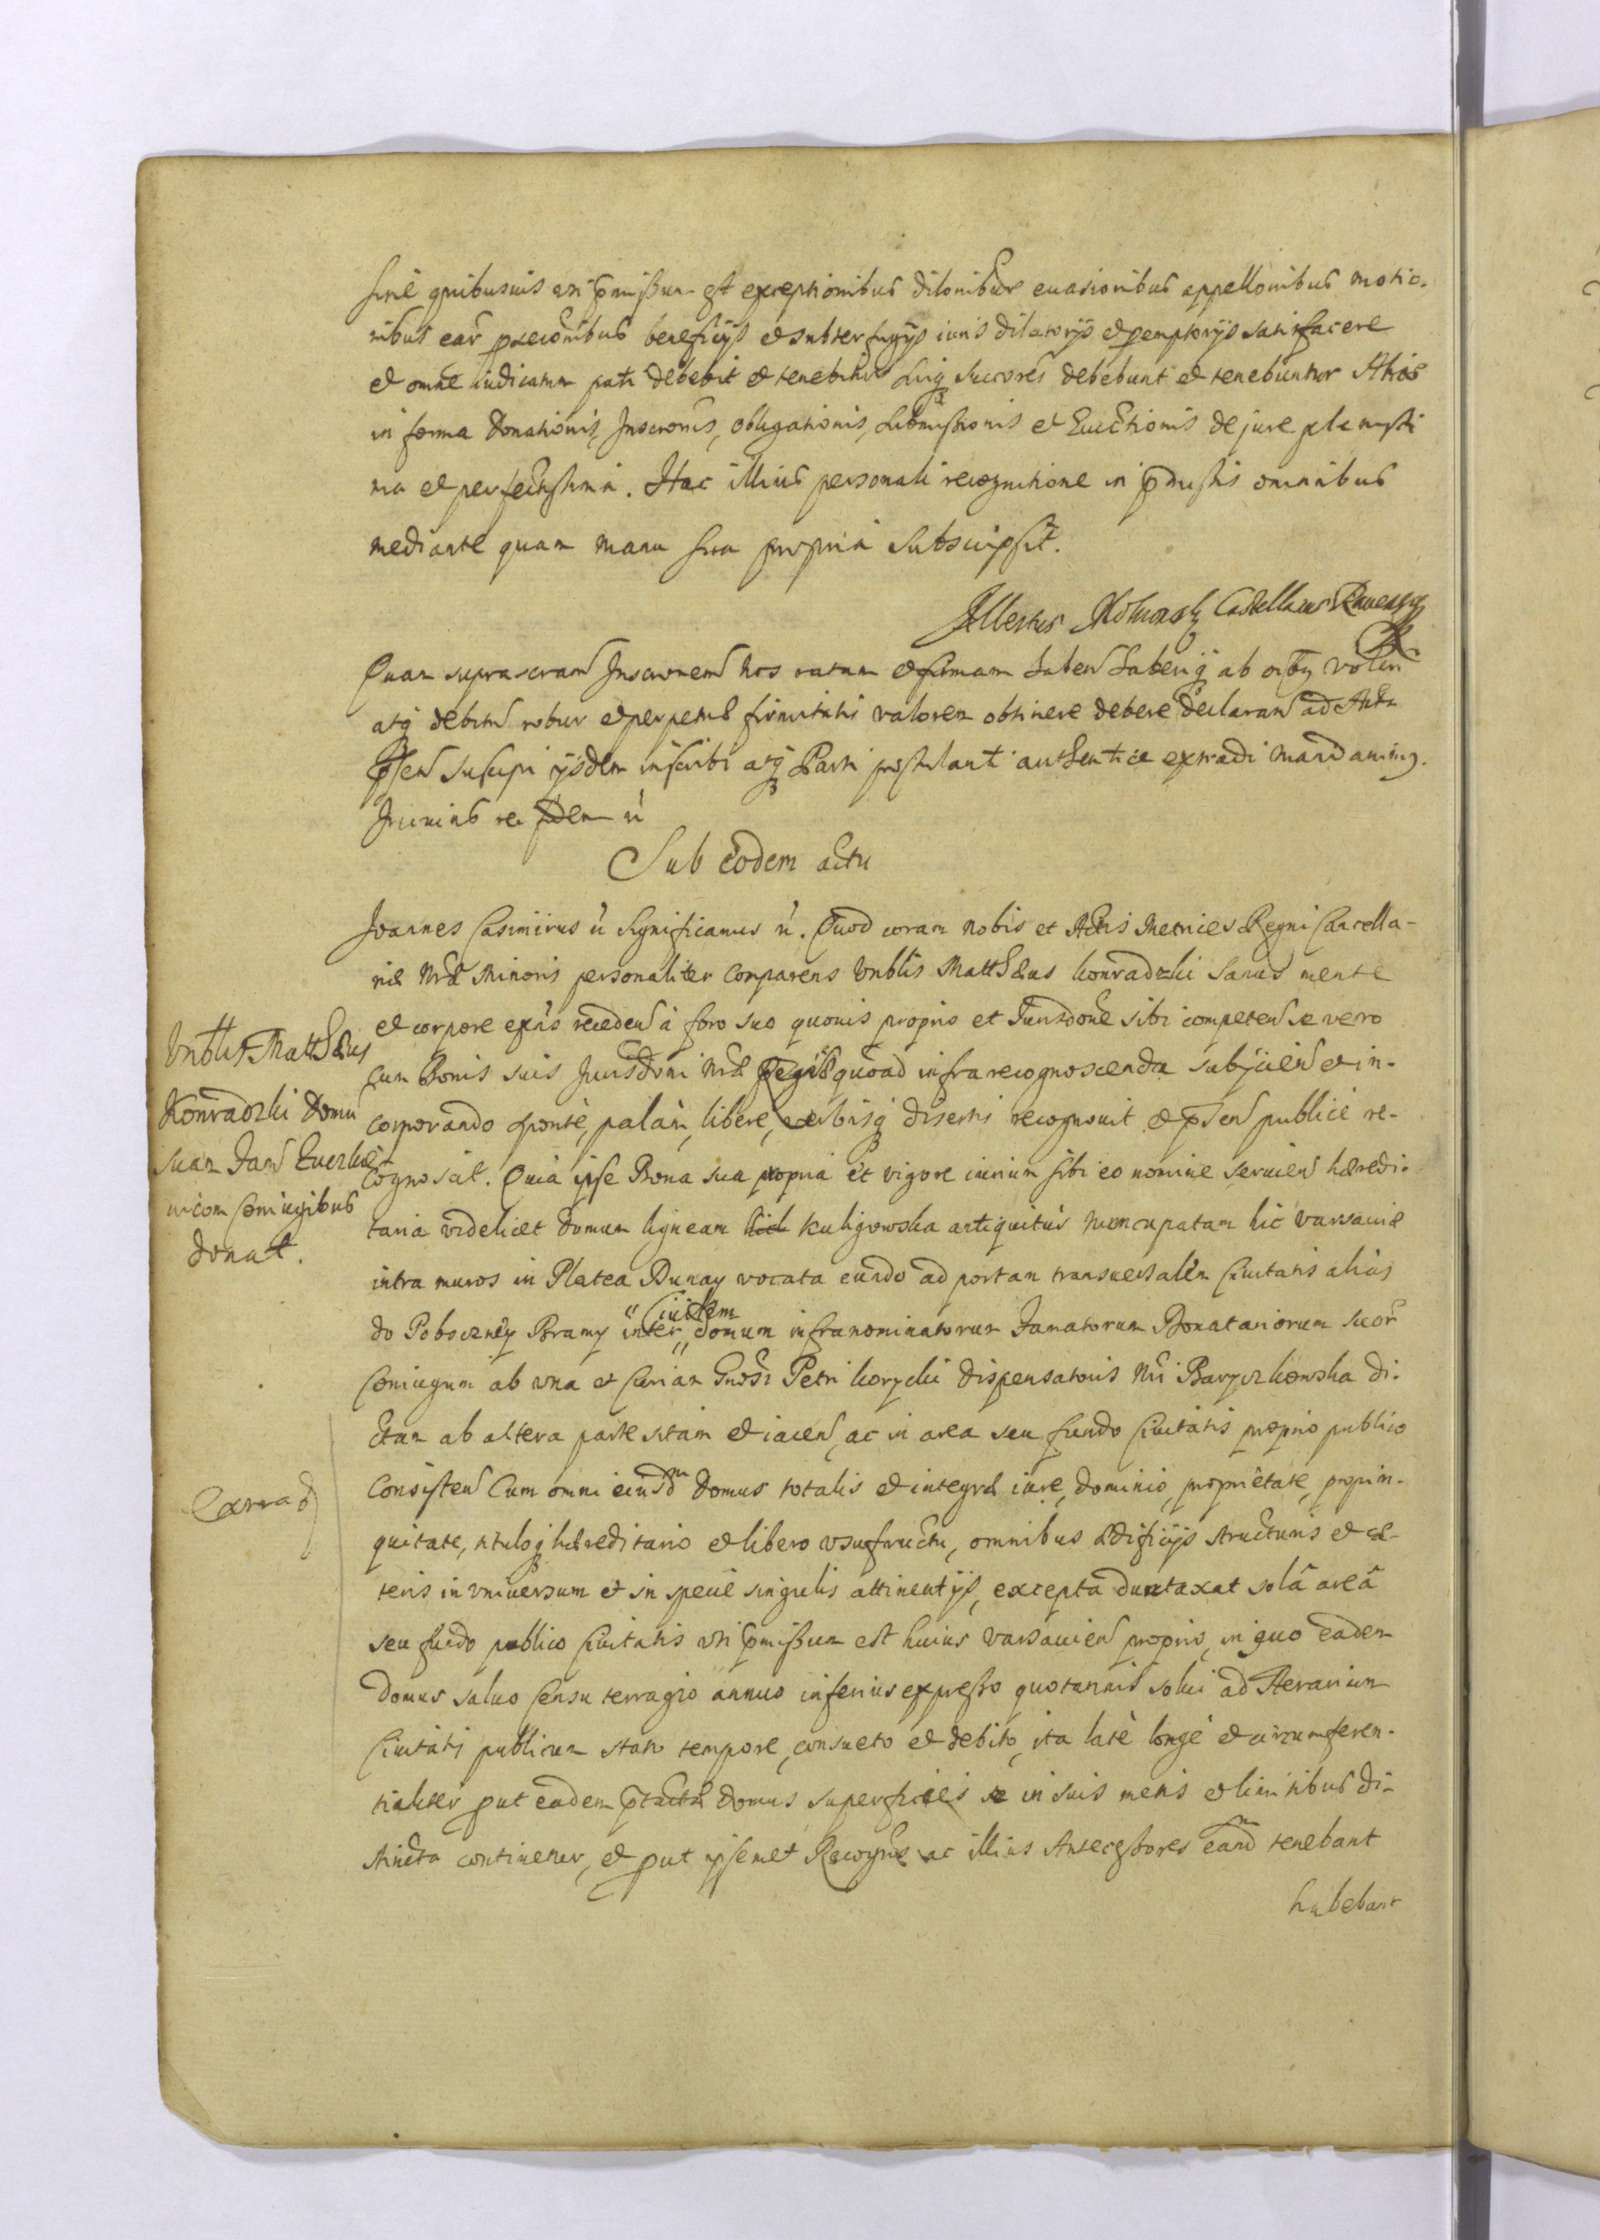 sine quibusuis uti pmissum est exceptionibus dilonibus evasionibus appellonibus motio-
nibus ear beneficijs et subterfugijs iuris dilatorijs et pemptorijs satisfacere
et omne iudicatum pati debebit et tenebitur suiq Succores debebunt et tenebuntur
in forma donationis, Inscronis, obligationis, submissionis et Evictionis de jure plenissi
ma et perfectissima. Hac illius personali recognitione in pmissis omnibus
mediante quam manu sua propria subscripsit.
Castellanus Ravensis
Quam suprascram Inscronem nos ratam et firmam haben haberiq ab oibq volen
atq debitu robur et perpetuæ firmitatis valorem obtinere debere declaran ad Acta
pnsen suscipi ijsdem inscribi atq Parti postulanti authentice extradi mandavimq.
In cuius rei fidem ũ
Sub eodem actu
Joannes Casimirus ũ Significamus ũ. Quod coram nobis et Actis Metrices Regni Cancella-
riæ Nræ Minoris personaliter comparens Vnblis Matthæus Konradzki Sanus mente
et corpore exñs recedens à foro suo quovis proprio et Jurisdone sibi competen se vero
cum Bonis suis Jurisdoni Nræ Regiæ quoad infra recognoscenda subijcien et in-
corporando sponte, palàm, libere, verbisq disertis recognovit et pnsen publice re-
cognoscit. Quia ipse Bona sua propria et vigore iurium sibi eo nomine servien hæredi-
taria videlicet domum ligneam Kuligowska antiquitùs nuncupatam hic Varsaviæ
intra muros in Platea Dunay vocata eundo ad portam transversalem Civitatis aliàs
do Poboczney Bramy inter "Civilem" domum infranominatorum Famatorum Donatariorum suor
Coniugum ab una et Curiam Gnosi Petri Korycki Dispensatoris Nri Baryczkowska di-
ctam ab altera parte sitam et iacen, ac in area seu fundo Civitatis proprio publico
consisten Cum omni eiusdm domus totalis et integræ iure, dominio, proprietate, propin-
quitate, tituloq hæreditario et libero usufructu, omnibus ædificijs structuris et cæ-
teris in universum et in specie singulis attinentijs, excepta duntaxat solâ areâ
seu fundo publico Civitatis uti pmissum est huius Varsavien proprio, in quo eadem
domus salvo Censu terragio annuo inferius expresso quotannis solui ad Aerarium
Civitatis publicum stato tempore, consueto et debito, ita latè longè et circumferen-
tialiter put eadem ptactæ domus superficies in suis metis et limitibus di-
stincta continetur, et put ipsemet Recogns ac illius Antecessores eandm tenebant
habebant
Vnblis Matthæus
Konradzki domu
suam Fams
Coniugibus
donat.